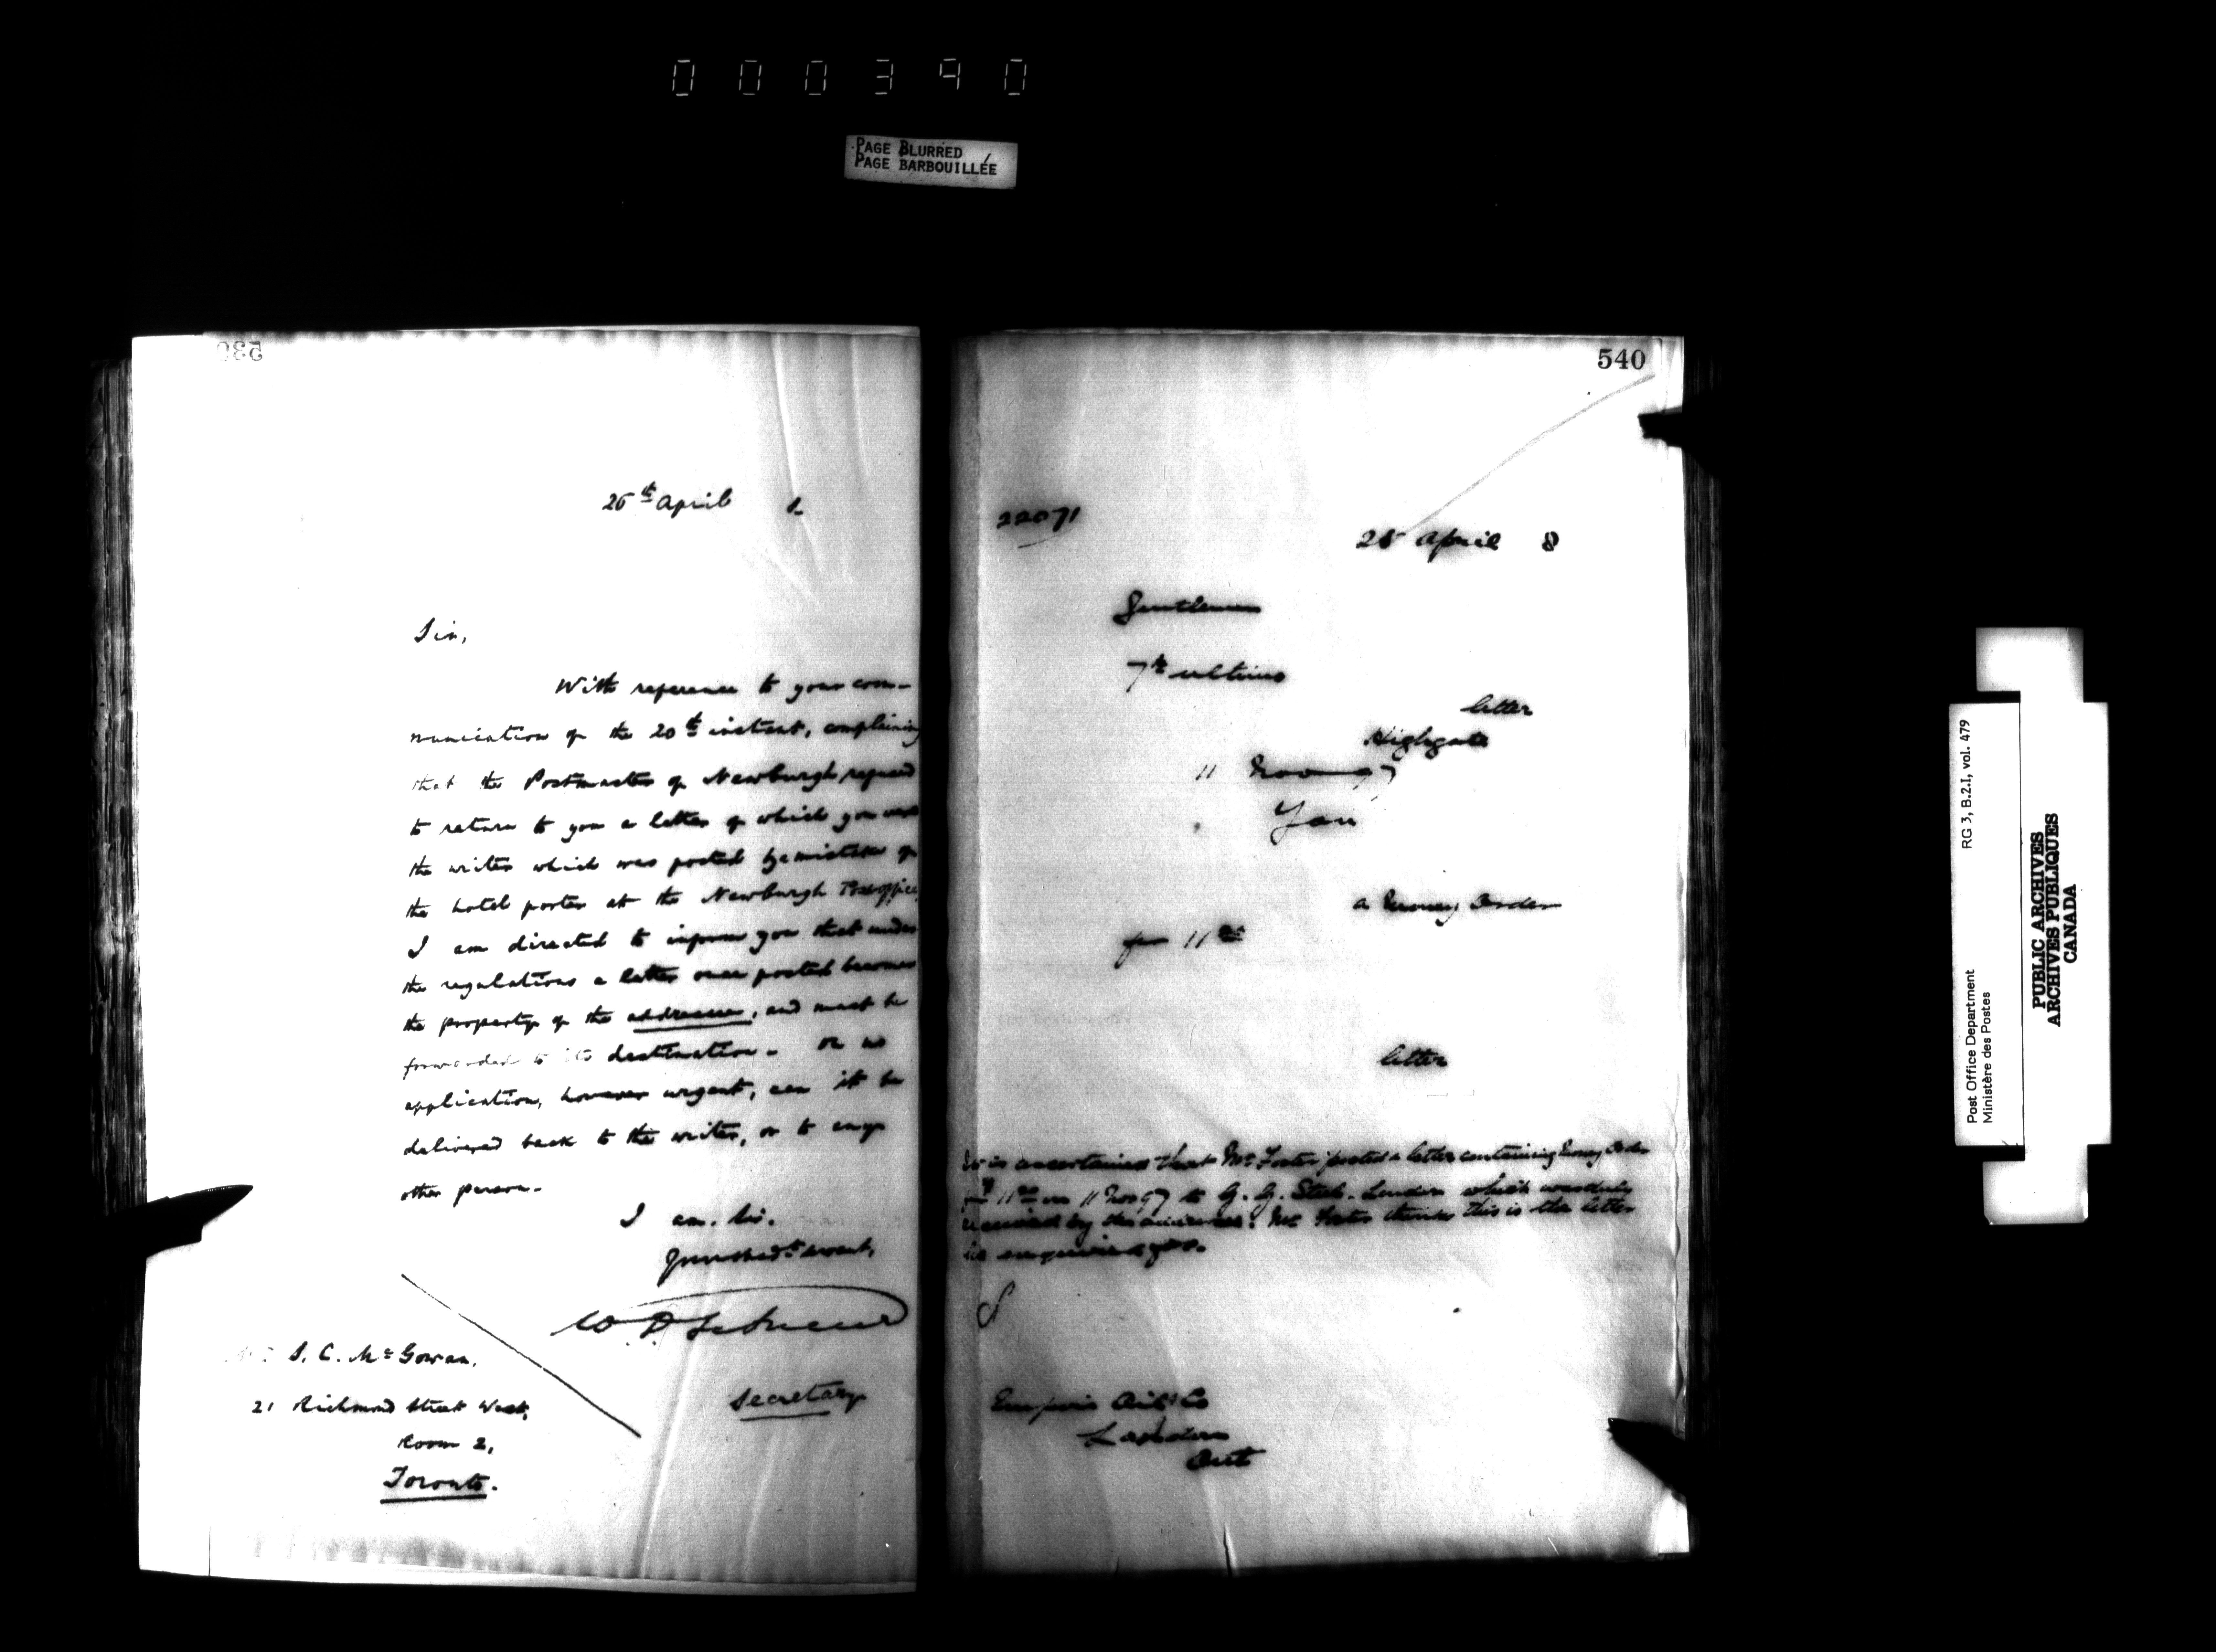 000390
PAGE BLURRED
PAGE BARBOUILLÉE
539
26th April 8
Sir,
With reference to your com-
munication of the 20th instant, complaining
that the Postmaster of Newburgh refused
to return to you a letter of which you were
the writer which was posted by mistake of
the hotel porter at the Newburgh Post office,
I am directed to inform you that under
the regulations a letter once posted becomes
the property of the addressee, and must be
forwarded to its destination. On no
application, however urgent, can it be
delivered back to the writer, or to any
other person.
I am, Sir,
Your obedt servant,
Secretary
S. C. McGowan,
21 Richmond Street West,
Room 2,
Toronto.
540
22071
25 April 8
Gentlemen
7th ultimo
letter
Highgate
11 Nov 97
You
a Money Order
for 11 00
letter
It is ascertained that Mr Foster posted a letter containing Money Order
for 11 00 on 11 Nov 97 to G. G. Steele London which was duly
received by the addressee. Mr Foster thinks this is the letter
is enquired for.
Empire Oil Co
London
Ont
RG 3, B.2.I, vol. 479
Post Office Department
Ministère des Postes
PUBLIC ARCHIVES
ARCHIVES PUBLIQUES
CANADA